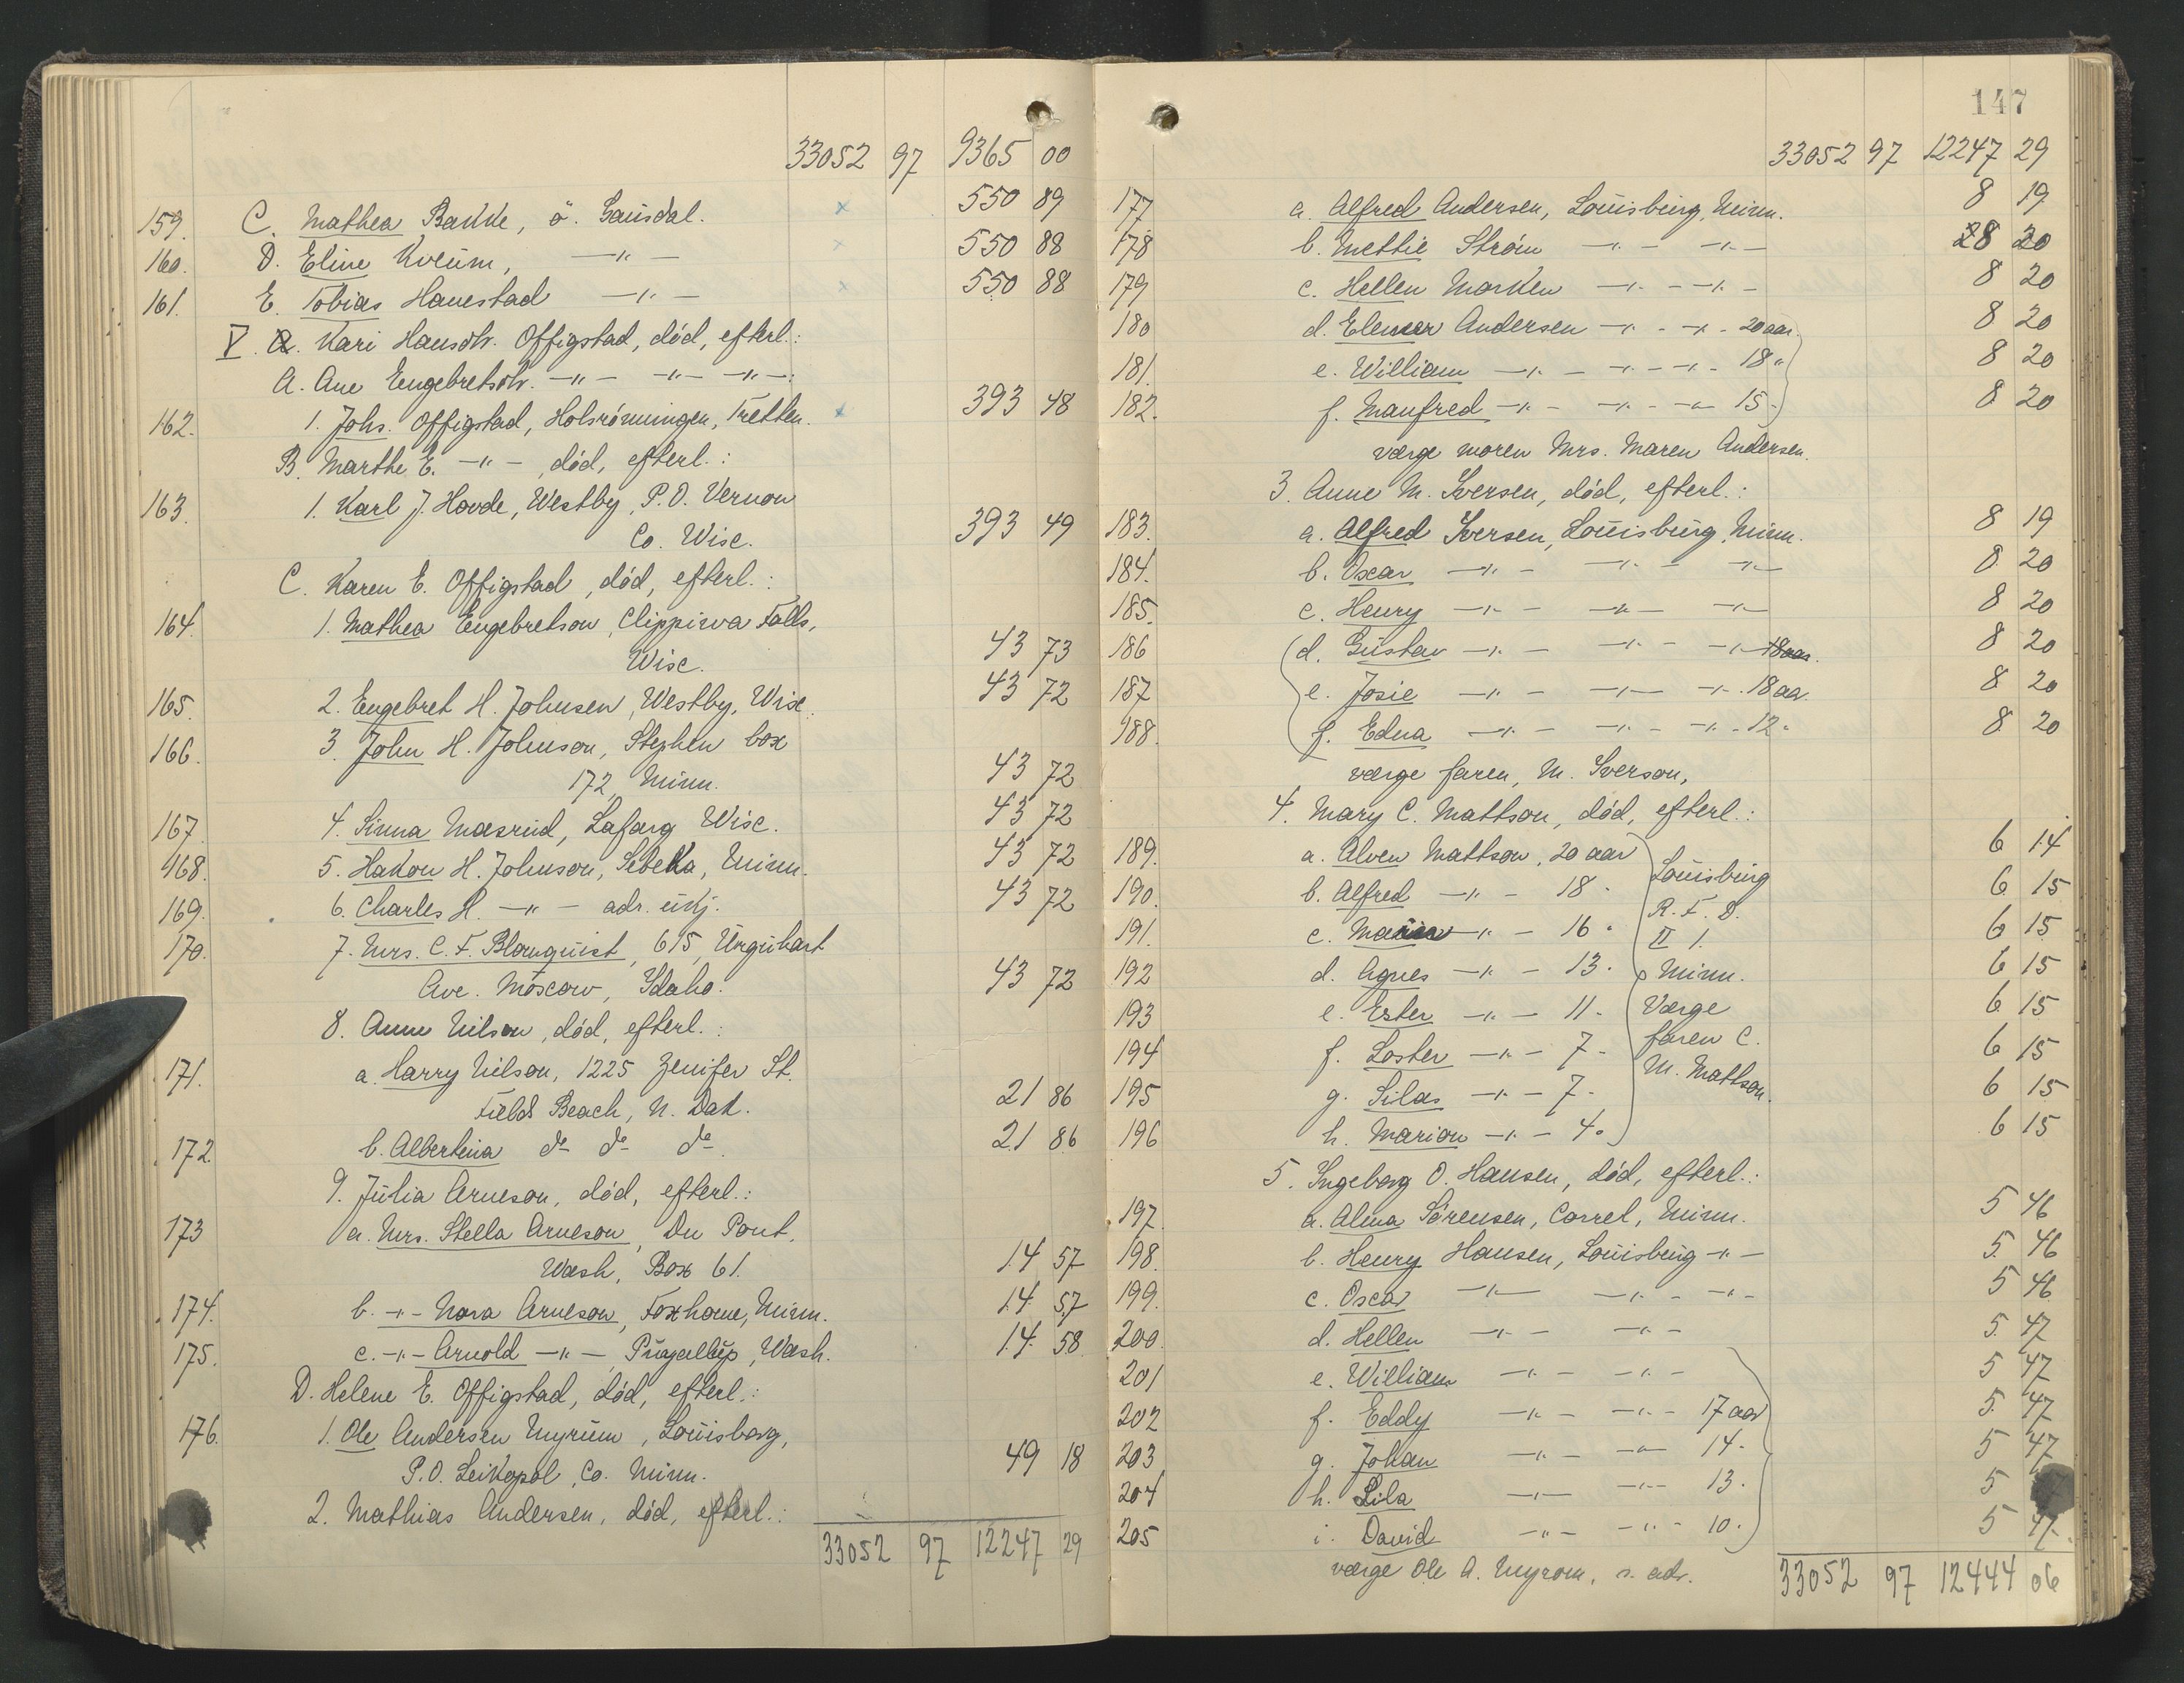 33052 97 9365 00
159. C. Mathea Bakke, ö. Gausdal. x 550 89
160. D. Eline Kveum, —"— x 550 88
161. E. Tobias Hauestad —"— x 550 88
V. A. Kari Hansdtr. Offigstad, död, efterl.:
A. Ane Engebretsdtr. —"— —"— —"—:
162. 1. Johs. Offigstad, Holsrönningen, Tretten. x 393 48
B. Marthe E. —"—, död, efterl.:
163. 1. Karl J. Hovde, Westby, P.O. Vernon
Co. Wisc. 393 49
C. Karen E. Offigstad, död, efterl.:
164. 1. Mathea Engebretson, Clippiwa Falls,
Wisc. 43 73
165. 2. Engebret H. Johnsen, Westby, Wisc. 43 72
166. 3. John H. Johnson, Stephen box
172, Minn. 43 72
167. 4. Sinna Maesrud, Lafarg Wisc. 43 72
168. 5. Hakon H. Johnson, Sebeka, Minn. 43 72
169. 6. Charles H. —"— adr. ukj. 43 72
170. 7. Mrs. C. F. Blomquist, 615, Urquhart
Ave. Moscow, Idaho. 43 72
8. Anne Nilson, död, efterl.:
171. a. Harry Nilson, 1225 Zenifer St.
Fields Beach, N. Dak. 21 86
172. b. Albertina do do do. 21 86
9. Julia Arneson, död, efterl.:
173 a. Mrs. Stella Arneson, Du Pont,
Wash, Box 61. 14 57
174. b. —"— Nora Arneson, Foxhome, Minn. 14 57
175. c. —"— Arnold —"—, Puyallup, Wash. 14 58
D. Helene E. Offigstad, död, efterl.:
176. 1. Ole Andersen Nyrum, Louisborg,
P.O. Leikopol, Co. Minn. 49 18
2. Mathias Andersen, död, efterl.:
33052 97 12247 29
147
33052 97 12247 29
177 a. Alfred Andersen, Louisburg, Minn. 8 19
178 b. Mettie Ström —"— —"— 8 20
179 c. Hellen Marken —"— —"— 8 20
180 d. Elenor Andersen —"— —"— 20 aar. 8 20
181. e. William —"— —"— —"— 18 " 8 20
182. f. Manfred —"— —"— —"— 15 " 8 20
værge moren Mrs. Maren Andersen.
3. Anne M. Iversen, död, efterl.:
183. a. Alfred Iversen, Louisburg, Minn. 8 19
184. b. Oscar —"— —"— —"— 8 20
185. c. Henry —"— —"— —"— 8 20
186 d. Gustav —"— —"— —"— 18 aar. 8 20
187 e. Josie —"— —"— —"— 18 aar. 8 20
188. f. Edna —"— —"— —"— 12 " 8 20
værge faren, M. Iverson,
4. Mary C. Mattson, död, efterl.:
189. a. Alven Mattson, 20 aar 6 14
Louisburg
190. b. Alfred —"— 18 " 6 15
R. F. D.
191. c. —"— 16 " II 1. 6 15
192 d. Agnes —"— 13 " Minn. 6 15
193 e. Ester —"— 11 " Værge 6 15
194 f. Loster —"— 7 " faren C. 6 15
195 g. Silas —"— 7 " M. Mattson. 6 15
196 h. Marion —"— 4 " 6 15
5. Ingeborg O. Hansen, död, efterl.:
197. a. Alma Sörensen, Correl, Minn. 5 46
198. b. Henry Hansen, Louisburg —"— 5 46
199. c. Oscar —"— —"— —"— 5 46
200. d. Hellen —"— —"— 5 47
201 e. William —"— —"— 5 47
202 f. Eddy —"— —"— 17 aar 5 47
203 g. Johan —"— —"— 14 " 5 47
204 h. Lila —"— —"— 13 " 5
205 i. David —"— —"— 10 " 5 47
værge Ole A. Nyrom, s. adr.
33052 97 12444 06